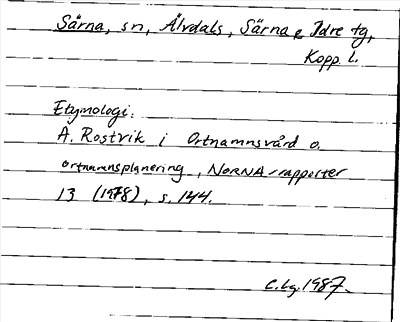 Särna, sn, Älvdals, Särna o Idre tg,
Kopp. l.
Etymologi:
A. Rostvik i Ortnamnsvård o.
ortnamnsplanering, NORNA-rapporter
13 (1978), s. 144.
C. Lg. 1987.